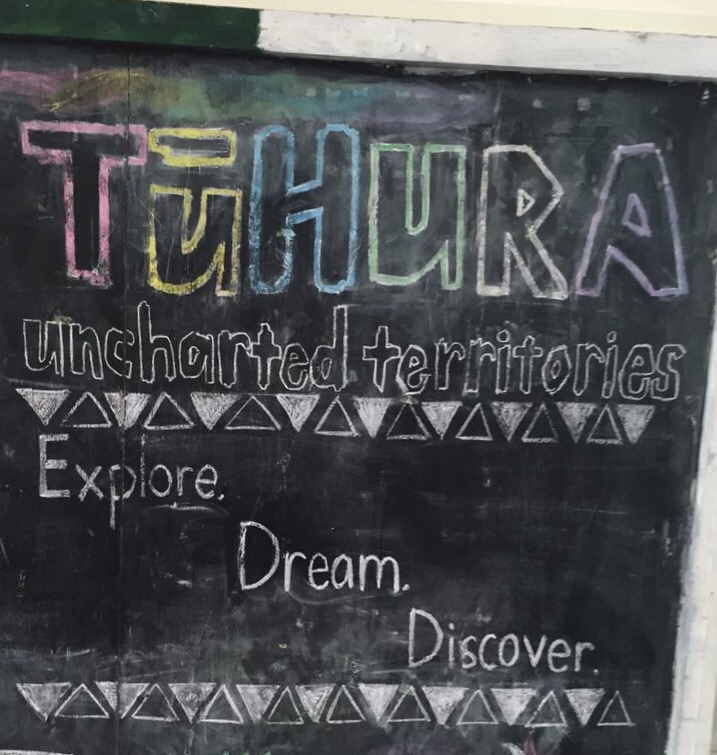 TŪHURA
uncharted territories
Explore.
Dream.
Discover.